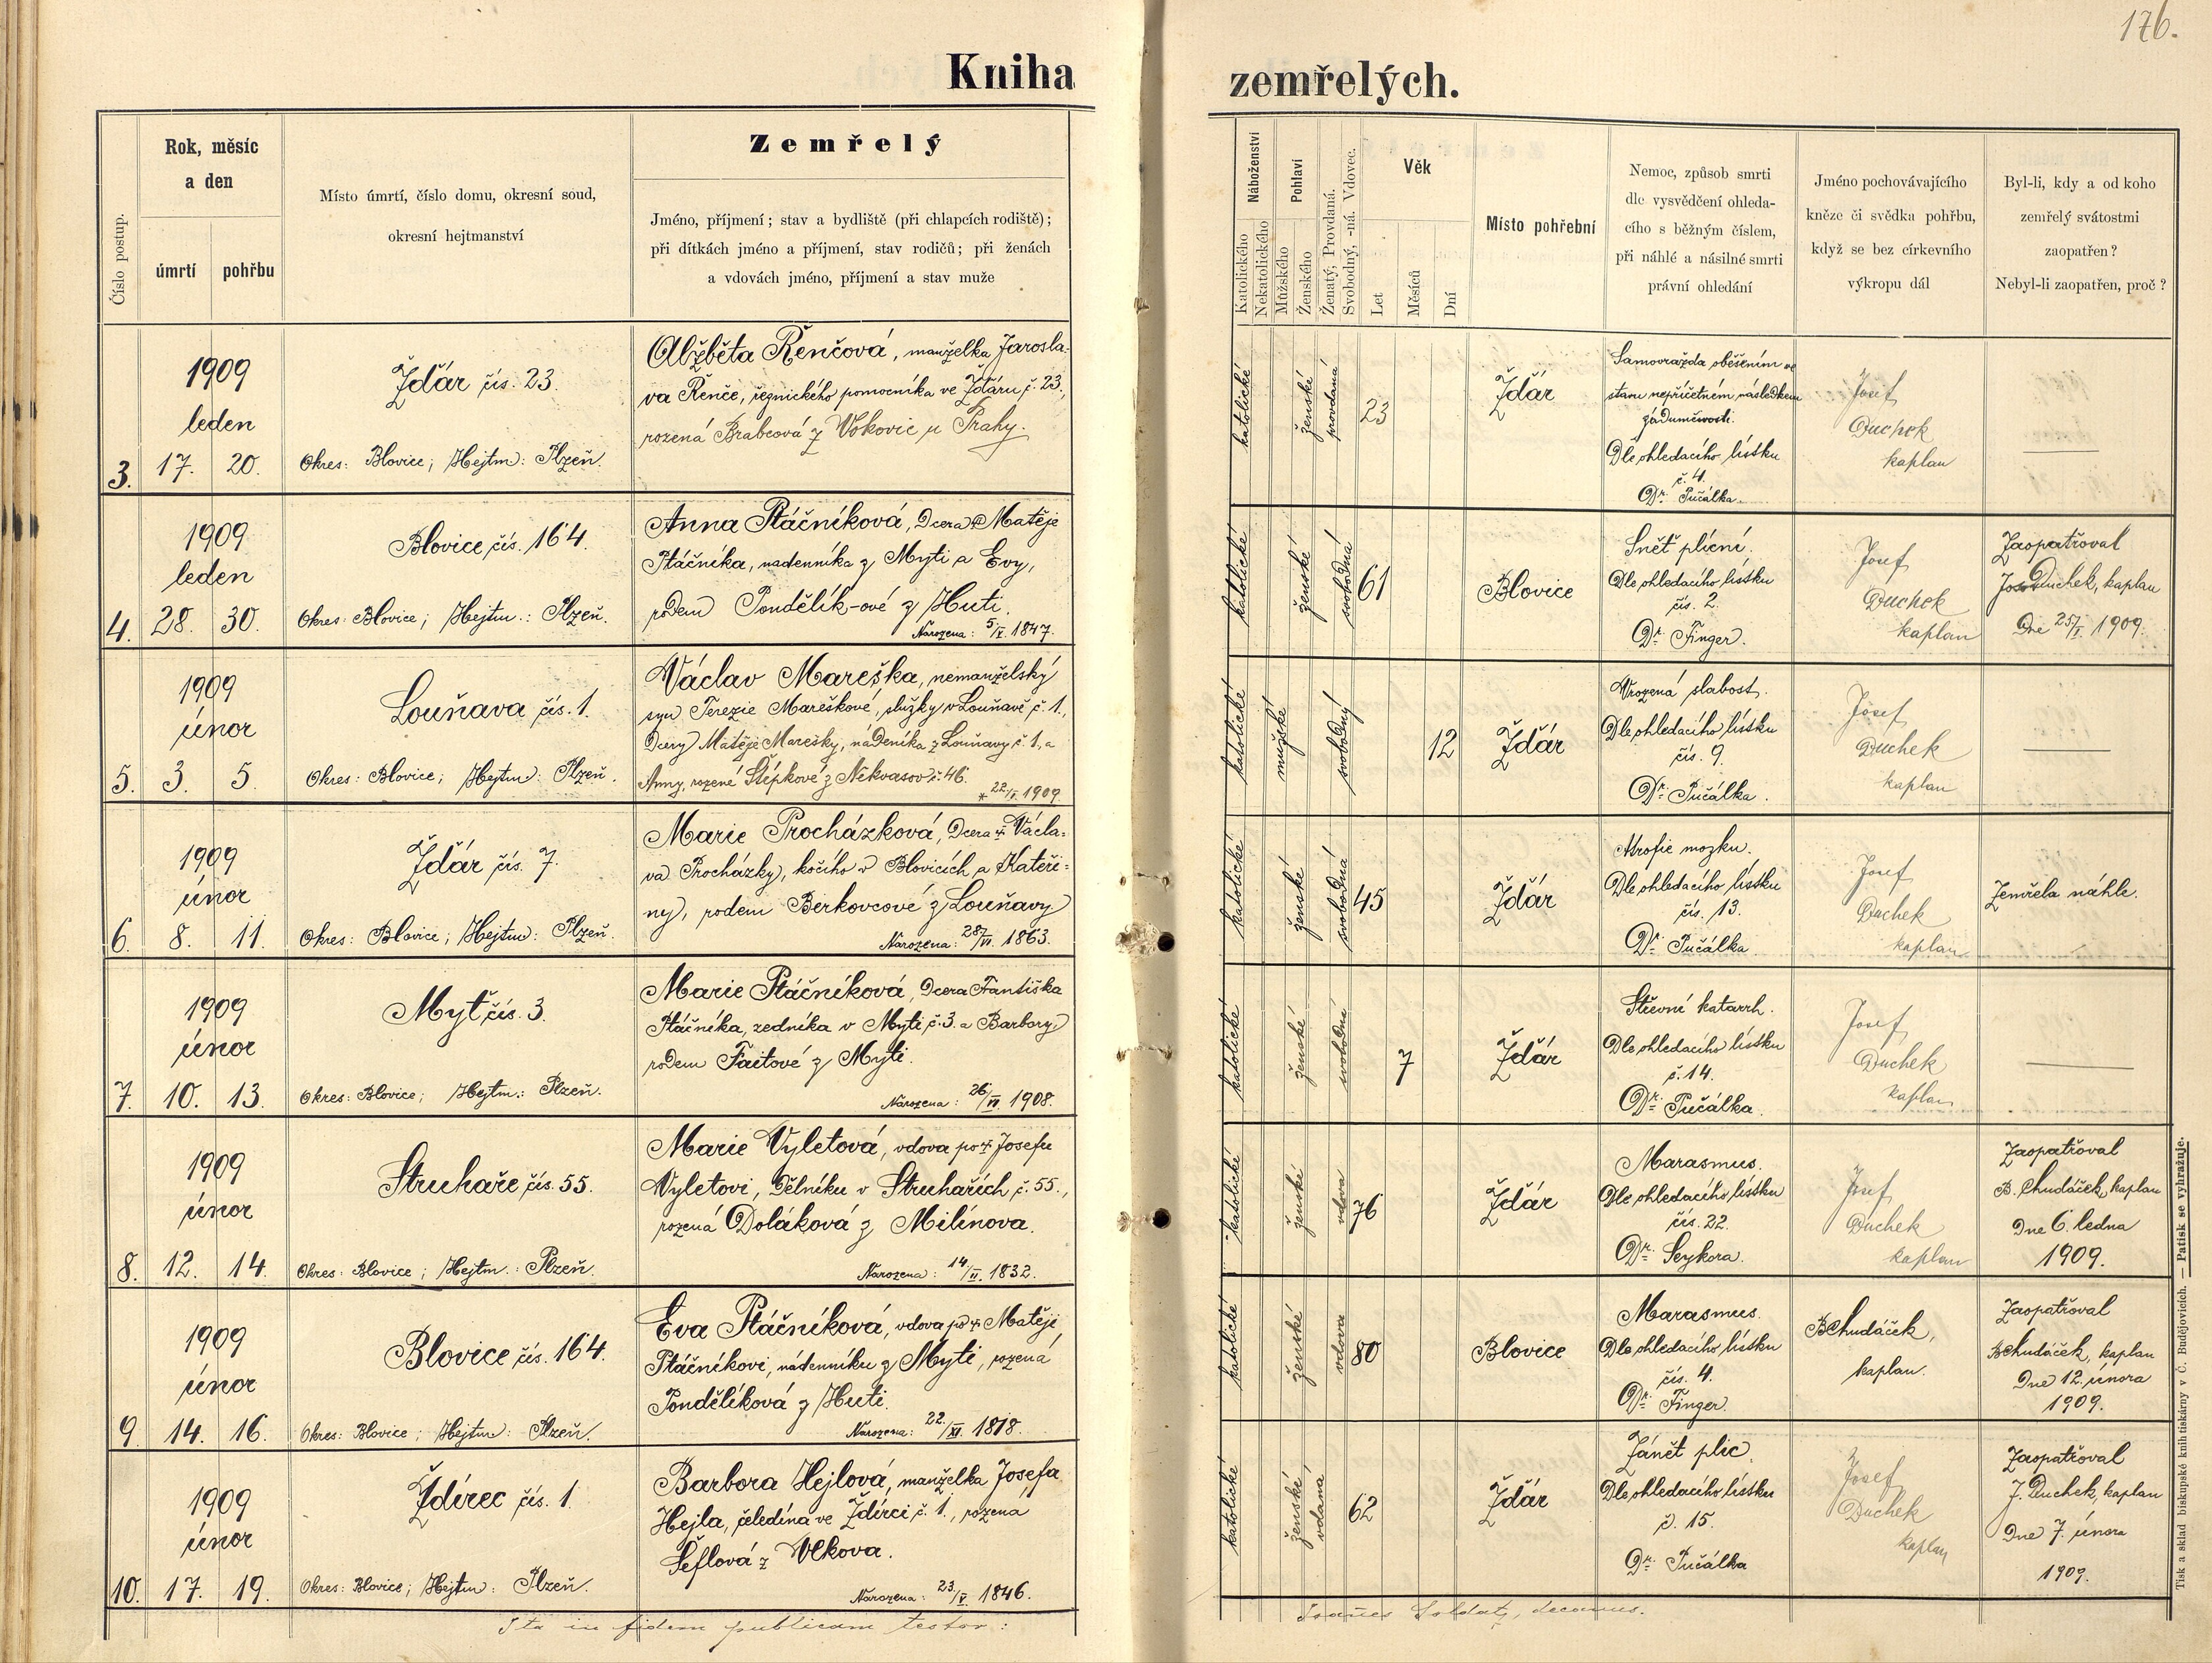 176.
Kniha zemřelých.
Číslo postup.
Rok, měsíc
a den
úmrtí
pohřbu
Místo úmrtí, číslo domu, okresní soud,
okresní hejtmanství
Zemřelý
Jméno, příjmení; stav a bydliště (při chlapcích rodiště);
při dítkách jméno a příjmení, stav rodičů; při ženách
a vdovách jméno, příjmení a stav muže
Náboženství
Katolického
Nekatolického
Pohlaví
Mužského
Ženského
Ženatý; Provdaná.
Svobodný, -ná. Vdovec.
Věk
Let
Měsíců
Dní
Místo pohřební
Nemoc, způsob smrti
dle vysvědčení ohleda-
cího s běžným číslem,
při náhlé a násilné smrti
právní ohledání
Jméno pochovávajícího
kněze či svědka pohřbu,
když se bez církevního
výkropu dál
Byl-li, kdy a od koho
zemřelý svátostmi
zaopatřen?
Nebyl-li zaopatřen, proč?
3.
1909
leden
17.
20.
Ždár čís. 23.
Okres: Blovice; Hejtm: Plzeň.
Alžběta Řenčová, manželka Jarosla-
va Řenče, řeznického pomocníka ve Ždáru č. 23.,
rozená Brabcová z Vokovic u Prahy.
katolické
ženské
provdaná
23
Ždár
Samovražda oběšením ve
stavu nepříčetném následkem
zádumčivosti.
Dle ohledacího lístku
č. 4.
Dr. Pučálka.
Josef
Duchek
kaplan
4.
1909
leden
28.
30.
Blovice čís. 164.
Okres: Blovice; Hejtm.: Plzeň.
Anna Ptáčníková, dcera Matěje
Ptáčníka, nadenníka z Myti a Evy,
rodem Pondělík-ové z Huti.
Narozena: 5/V. 1847.
katolické
ženské
svobodná
61
Blovice
Snět plicní.
Dle ohledacího lístku
čís. 2.
Dr. Finger.
Josef
Duchek
kaplan
Zaopatřoval
Jos. Duchek, kaplan
Dne 25/I. 1909.
5.
1909
únor
3.
5.
Louňava čís. 1.
Okres: Blovice; Hejtm: Plzeň.
Václav Mareška, nemanželský
syn Terezie Mareškové, služky v Louňavě č. 1.,
dcery Matěje Marešky, nádeníka z Louňavy č. 1., a
Anny, rozené Štěpkové z Nekvasov č. 46.
* 22/I. 1909.
katolické
mužské
svobodný
12
Ždár
Vrozená slabost.
Dle ohledacího lístku
čís. 9.
Dr. Pučálka.
Josef
Duchek
kaplan
6.
1909
únor
8.
11.
Ždár čís. 7.
Okres: Blovice; Hejtm: Plzeň.
Marie Procházková, dcera † Václa-
va Procházky, kočího v Blovicích a Kateři-
ny, rodem Berkovcové z Louňavy.
Narozena: 28/VI. 1863.
katolické
ženské
svobodná
45
Ždár
Atrofie mozku.
Dle ohledacího lístku
čís. 13.
Dr. Pučálka
Josef
Duchek
kaplan
Zemřela náhle.
7.
1909
únor
10.
13.
Myť čís. 3.
Okres: Blovice; Hejtm.: Plzeň.
Marie Ptáčníková, dcera Františka
Ptáčníka, zedníka v Myti č. 3. a Barbory,
rodem Faitové z Myti.
Narozena: 26/VI. 1908.
katolické
ženské
svobodná
7
Ždár
Střevní katarrh.
Dle ohledacího lístku
č. 14.
Dr. Pučálka.
Josef
Duchek
kaplan
8.
1909
únor
12.
14.
Struhaře čís. 55.
Okres: Blovice; Hejtm.: Plzeň.
Marie Vyletová, vdova po † Josefu
Vyletovi, dělníku v Struhařích č. 55.,
rozená Doláková z Milínova.
Narozena: 14/II. 1832.
katolické
ženské
vdova
76
Ždár
Marasmus.
Dle ohledacího lístku
čís. 22.
Dr. Seykora.
Josef
Duchek
kaplan
Zaopatřoval
B. Chudáček, kaplan
Dne 6. ledna
1909.
9.
1909
únor
14.
16.
Blovice čís. 164.
Okres: Blovice; Hejtm: Plzeň.
Eva Ptáčníková, vdova po † Matěji
Ptáčníkovi, nádenníku z Myti, rozená
Pondělíková z Huti.
Narozena: 22./XI. 1818.
katolické
ženské
vdova
80
Blovice
Marasmus.
Dle ohledacího lístku
čís. 4.
Dr. Finger.
B Chudáček,
kaplan.
Zaopatřoval
B Chudáček, kaplan
Dne 12. února
1909.
10.
1909
únor
17.
19.
Ždírec čís. 1.
Okres: Blovice; Hejtm: Plzeň.
Barbora Hejlová, manželka Josefa
Hejla, čeledína ve Ždírci č. 1., rozena
Šeflová z Vlkova.
Narozena: 23./V. 1846.
katolické
ženské
vdaná
62
Ždár
Zánět plic.
Dle ohledacího lístku
č. 15.
Dr. Pučálka
Josef
Duchek
kaplan
Zaopatřoval
J. Duchek, kaplan
Dne 7. února
1909.
Ita in fidem publicam testor:
Joañes Soldatz, decanus.
Tisk a sklad biskupské knihtiskárny v Č. Budějovicích. — Patisk se vyhražuje.